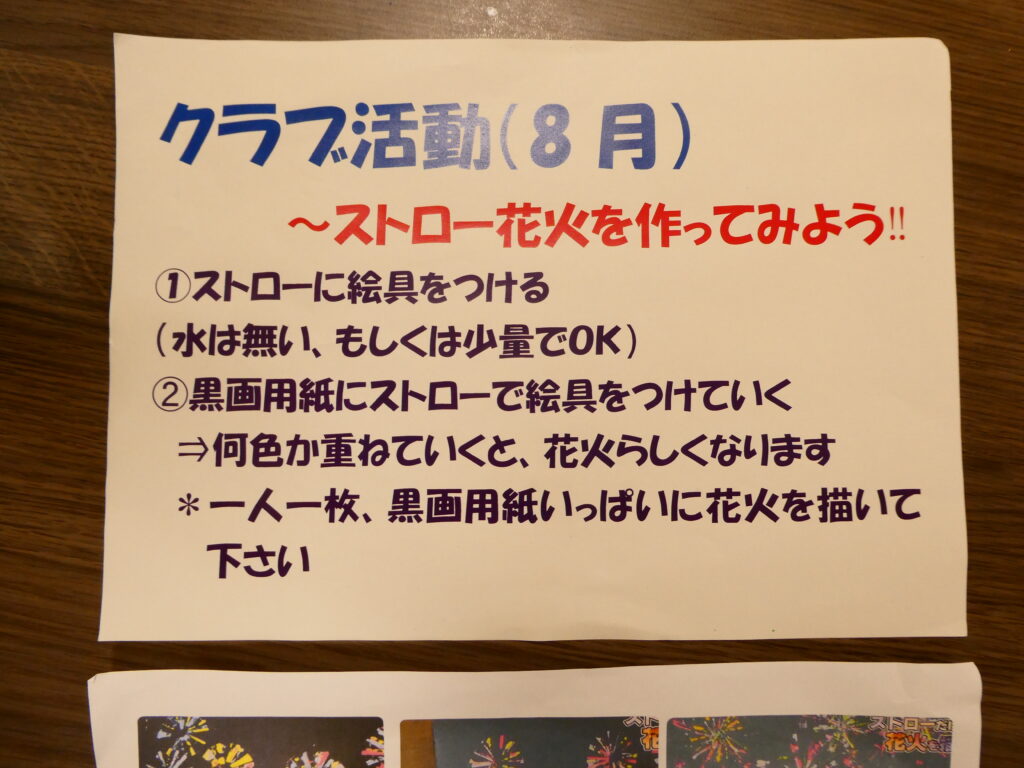 クラブ活動(8月)
～ストロー花火を作ってみよう!!
①ストローに絵具をつける
(水は無い、もしくは少量でOK)
②黒画用紙にストローで絵具をつけていく
⇒何色か重ねていくと、花火らしくなります
＊一人一枚、黒画用紙いっぱいに花火を描いて
下さい
スト
花
ストロー
花火を